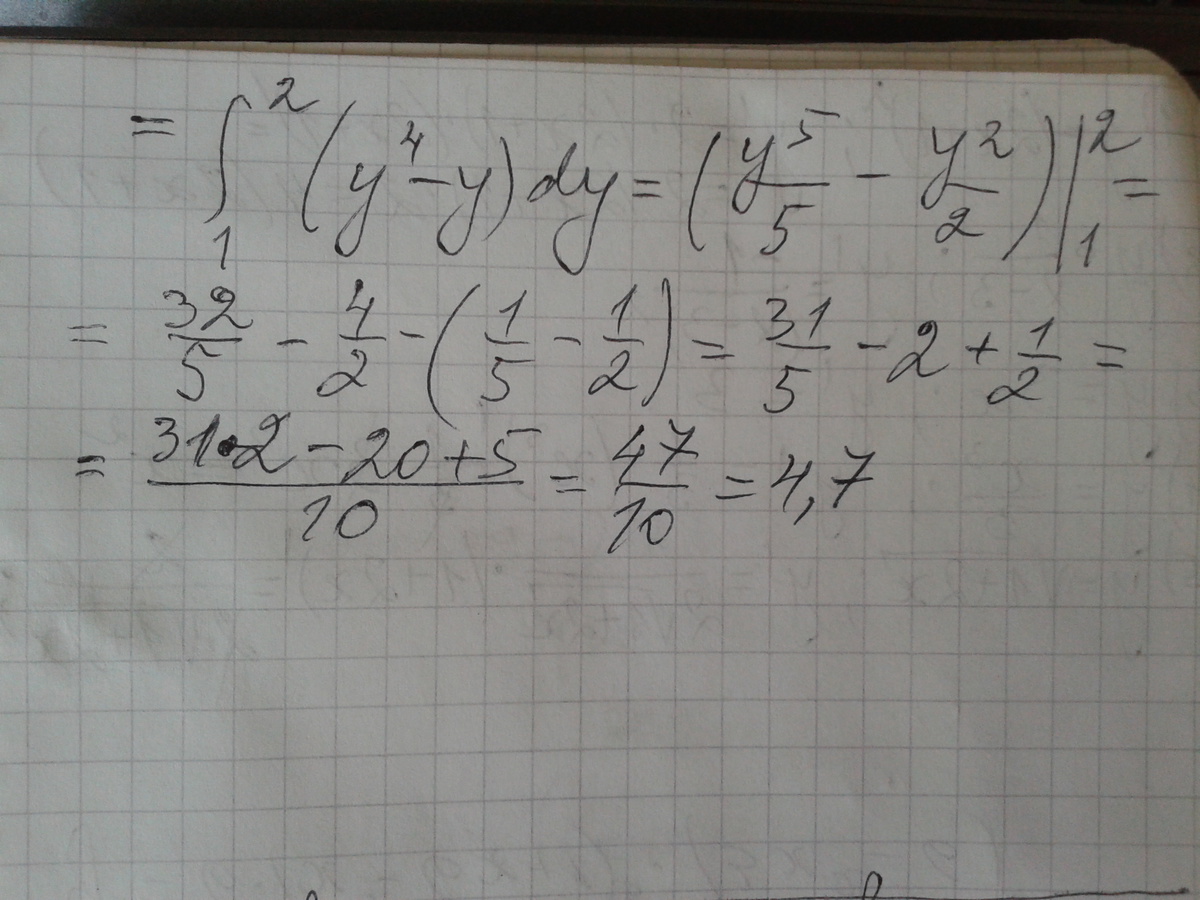 = ∫₁² (y⁴ − y) dy = (y⁵/5 − y²/2) |₁² =
= 32/5 − 4/2 − (1/5 − 1/2) = 31/5 − 2 + 1/2 =
= (31•2 − 20 + 5)/10 = 47/10 = 4,7